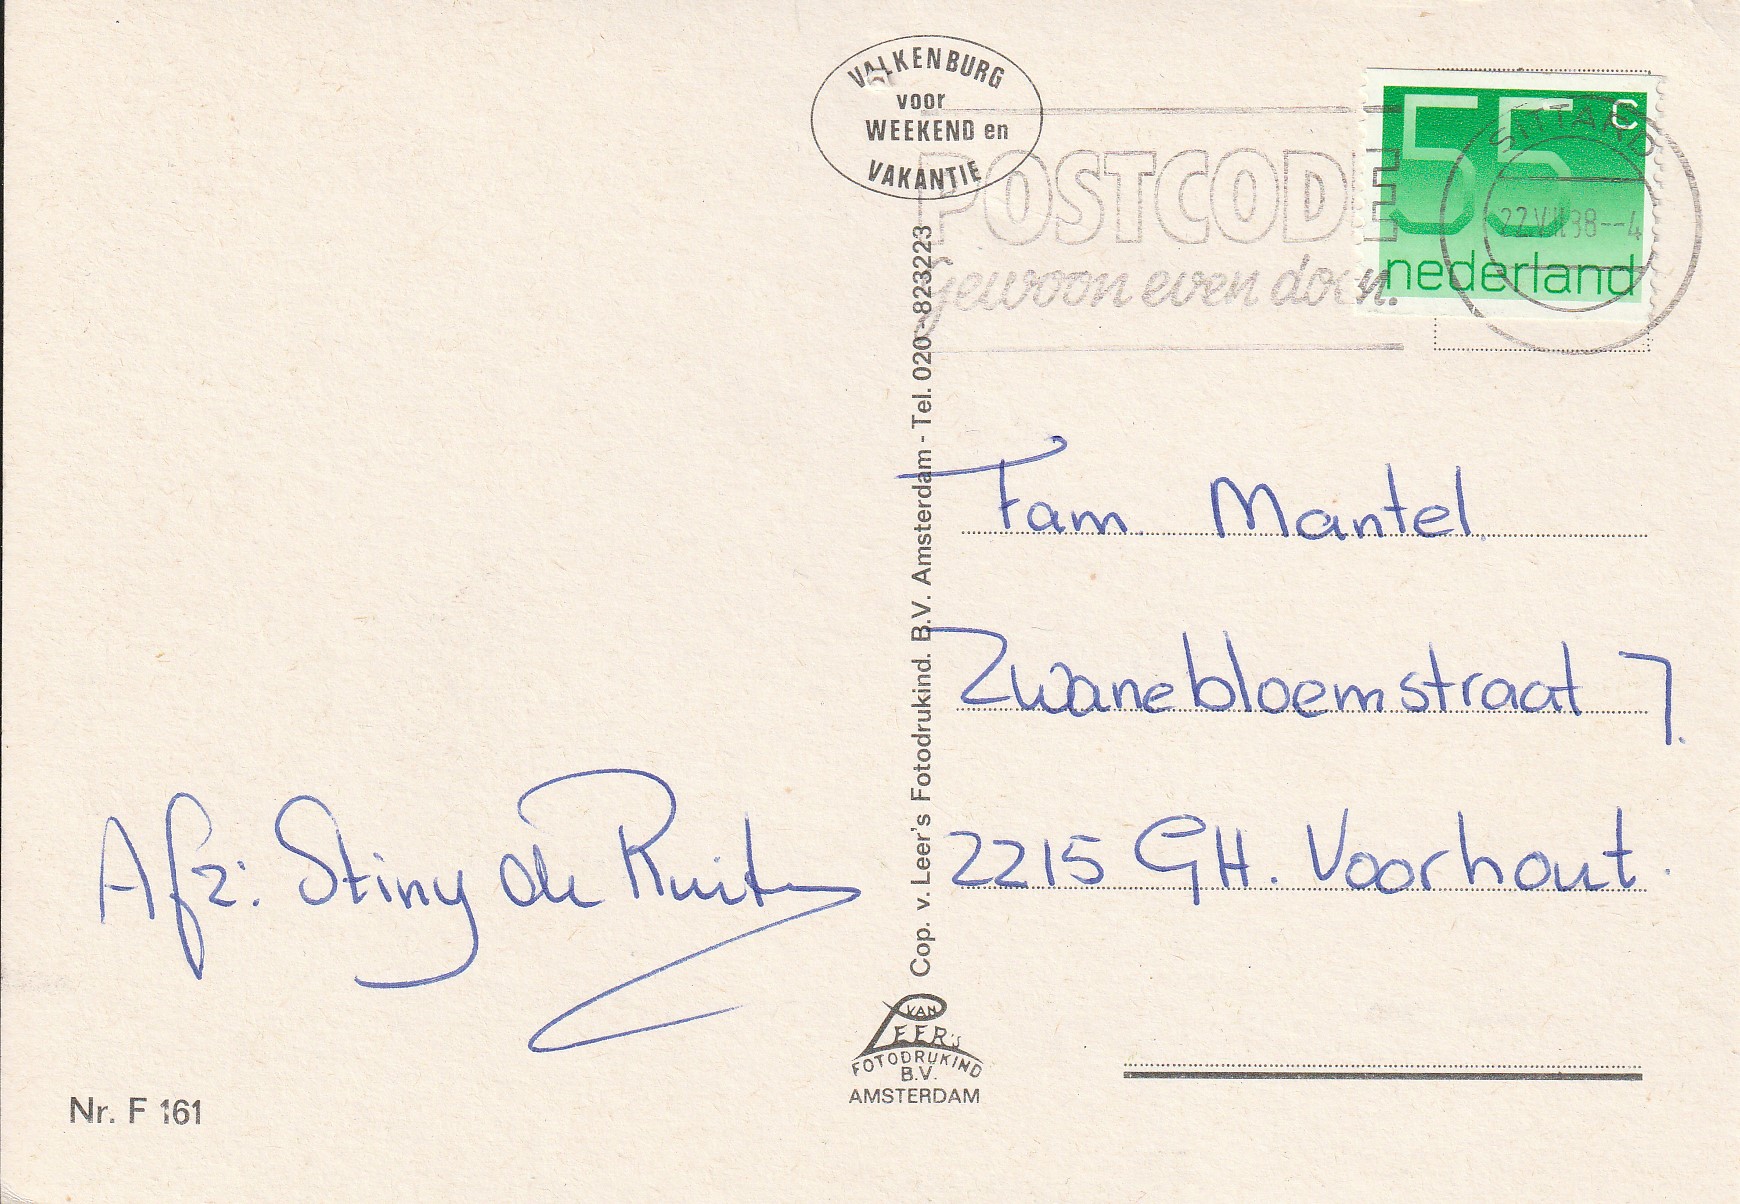 VALKENBURG
voor
WEEKEND en
VAKANTIE
POSTCODE
gewoon even doen.
55 c
nederland
SITTARD
Fam. Mantel.
Zwanebloemstraat 7.
2215 GH. Voorhout.
Afz: Stiny de Ruiter
Cop. v. Leer's Fotodrukind. B.V. Amsterdam - Tel. 020-823223
VAN
LEER'S
FOTODRUKIND
B.V.
AMSTERDAM
Nr. F 161